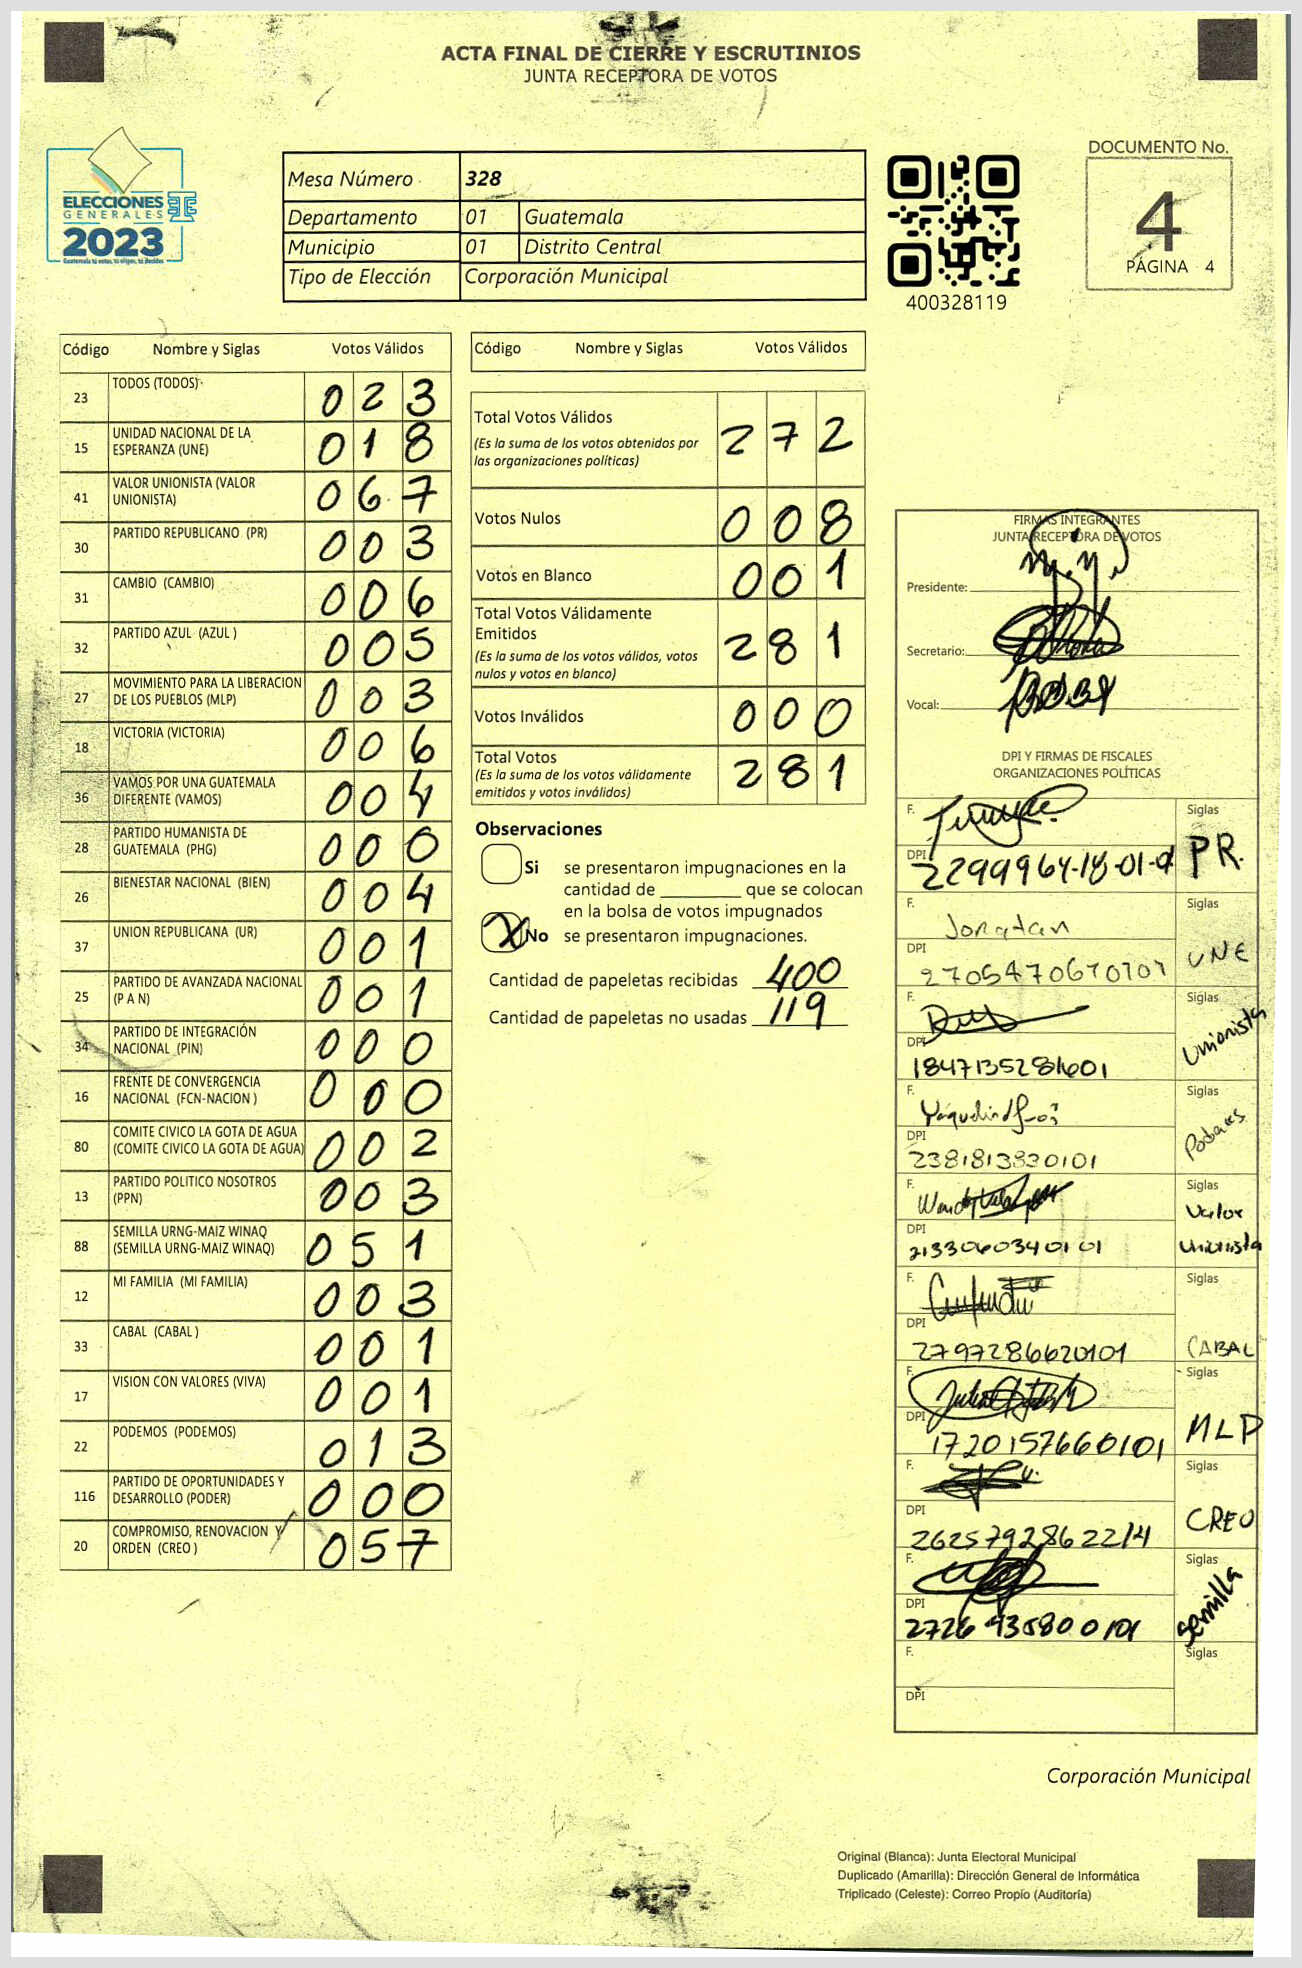 ACTA FINAL DE CIERRE Y ESCRUTINIOS
JUNTA RECEPTORA DE VOTOS
ELECCIONES
GENERALES
2023
Mesa Número 328
Departamento 01 Guatemala
Municipio 01 Distrito Central
Tipo de Elección Corporación Municipal
400328119
DOCUMENTO No.
4
PÁGINA 4
Código Nombre y Siglas Votos Válidos
23 TODOS (TODOS) 023
15 UNIDAD NACIONAL DE LA ESPERANZA (UNE) 018
41 VALOR UNIONISTA (VALOR UNIONISTA) 067
30 PARTIDO REPUBLICANO (PR) 003
31 CAMBIO (CAMBIO) 006
32 PARTIDO AZUL (AZUL ) 005
27 MOVIMIENTO PARA LA LIBERACION DE LOS PUEBLOS (MLP) 003
18 VICTORIA (VICTORIA) 006
36 VAMOS POR UNA GUATEMALA DIFERENTE (VAMOS) 004
28 PARTIDO HUMANISTA DE GUATEMALA (PHG) 000
26 BIENESTAR NACIONAL (BIEN) 004
37 UNION REPUBLICANA (UR) 001
25 PARTIDO DE AVANZADA NACIONAL (P A N) 001
34 PARTIDO DE INTEGRACIÓN NACIONAL (PIN) 000
16 FRENTE DE CONVERGENCIA NACIONAL (FCN-NACION ) 000
80 COMITE CIVICO LA GOTA DE AGUA (COMITE CIVICO LA GOTA DE AGUA) 002
13 PARTIDO POLITICO NOSOTROS (PPN) 003
88 SEMILLA URNG-MAIZ WINAQ (SEMILLA URNG-MAIZ WINAQ) 051
12 MI FAMILIA (MI FAMILIA) 003
33 CABAL (CABAL ) 001
17 VISION CON VALORES (VIVA) 001
22 PODEMOS (PODEMOS) 013
116 PARTIDO DE OPORTUNIDADES Y DESARROLLO (PODER) 000
20 COMPROMISO, RENOVACION Y ORDEN (CREO ) 057
Código Nombre y Siglas Votos Válidos
Total Votos Válidos 272
(Es la suma de los votos obtenidos por
las organizaciones políticas)
Votos Nulos 008
Votos en Blanco 001
Total Votos Válidamente
Emitidos 281
(Es la suma de los votos válidos, votos
nulos y votos en blanco)
Votos Inválidos 000
Total Votos 281
(Es la suma de los votos válidamente
emitidos y votos inválidos)
Observaciones
Si se presentaron impugnaciones en la
cantidad de ________ que se colocan
en la bolsa de votos impugnados
X No se presentaron impugnaciones.
Cantidad de papeletas recibidas 400
Cantidad de papeletas no usadas 119
FIRMAS INTEGRANTES
JUNTA RECEPTORA DE VOTOS
Presidente:
Secretario:
Vocal:
DPI Y FIRMAS DE FISCALES
ORGANIZACIONES POLÍTICAS
F. Siglas PR.
DPI
F. Jonatan Siglas UNE
DPI
F. Siglas Unionista
DPI 1847135281601
F. Siglas
DPI 2381813830101
F. Siglas Valor Unionista
DPI 2133060340101
F. Siglas CABAL
DPI 2797286620101
F. Siglas MLP
DPI 1720157660101
F. Siglas CREO
DPI 2625792862214
F. Siglas Semilla
DPI
F. Siglas
DPI
Corporación Municipal
Original (Blanca): Junta Electoral Municipal
Duplicado (Amarilla): Dirección General de Informática
Triplicado (Celeste): Correo Propio (Auditoría)